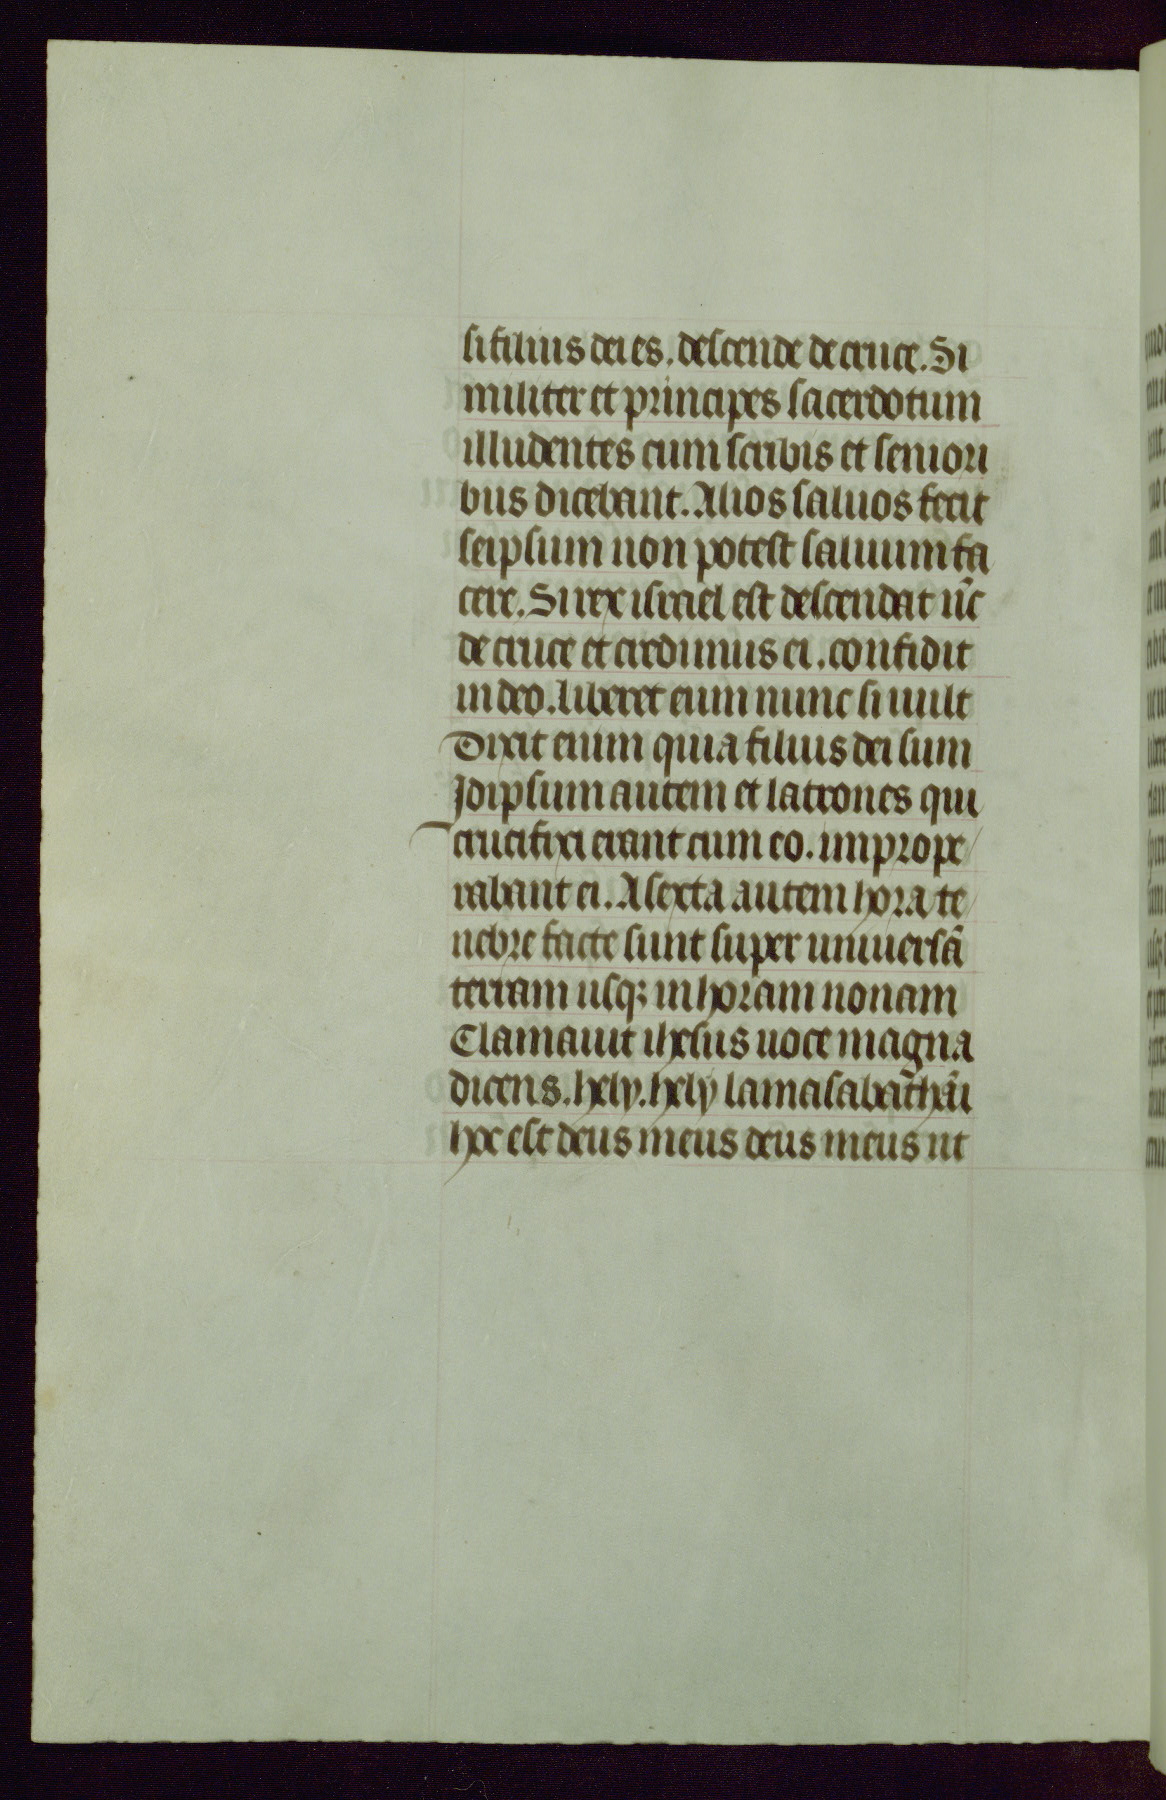 si filius dei es. descende de cruce. Si
militer et principes sacerdotum
illudentes cum scribis et seniori
bus dicebant. Alios saluos fecit
seipsum non potest saluum fa
cere. Si rex israel est descendat nc̄
de cruce et credimus ei. confidit
in deo. liberet eum nunc si uult
Dixit enim quia filius dei sum
Idipsum autem et latrones qui
crucifixi erant cum eo. imprope
rabant ei. A sexta autem hora te
nebre facte sunt super uniuersā
terram usqꝫ in horam nonam
Clamauit ihesus uoce magna
dicens. hely. hely lamasabat̄hāi
hoc est deus meus deus meus ut